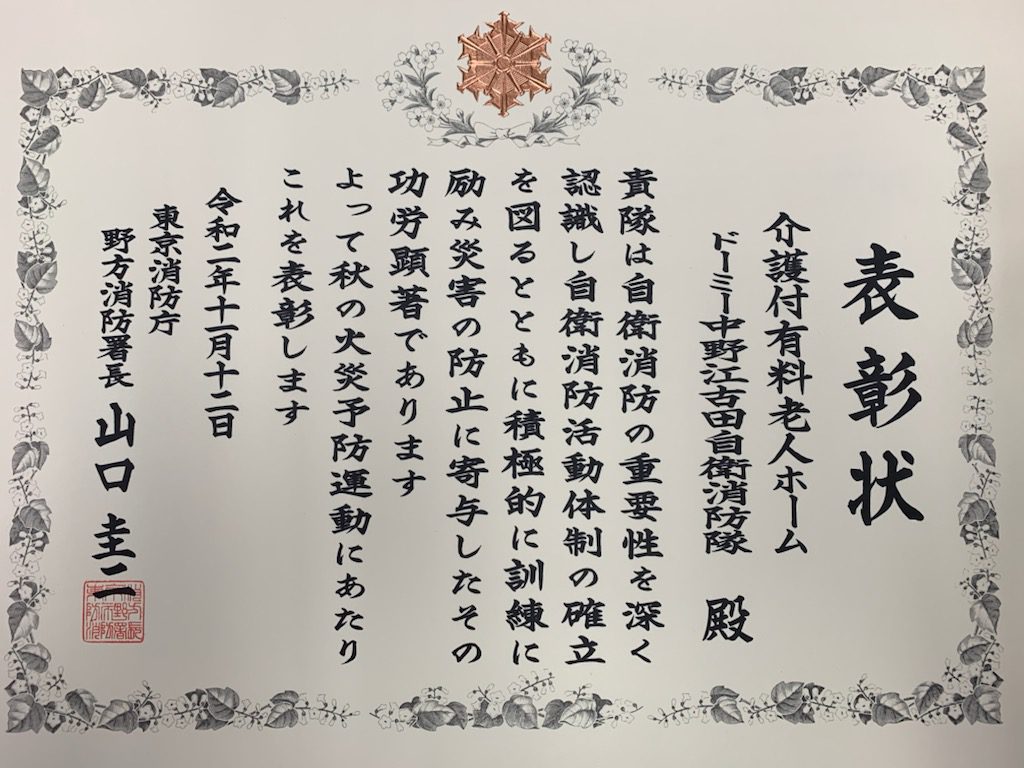 表彰状
介護付有料老人ホーム
ドーミー中野江古田自衛消防隊 殿
貴隊は自衛消防の重要性を深く
認識し自衛消防活動体制の確立
を図るとともに積極的に訓練に
励み災害の防止に寄与したその
功労顕著であります
よって秋の火災予防運動にあたり
これを表彰します
令和二年十一月十二日
東京消防庁
野方消防署長 山口 圭二